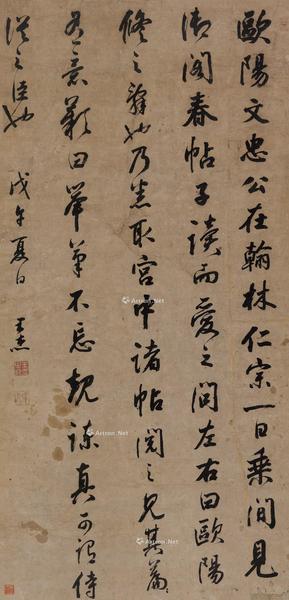 歐陽文忠公在翰林仁宗一日乘間見
御閣春帖子讀而愛之問左右曰歐陽
脩之辭也乃悉取宮中諸帖閱之見其篇
有意歎曰舉筆不忘規諫真可謂侍
從之臣也 戊午夏日 王杰
Artron.Net